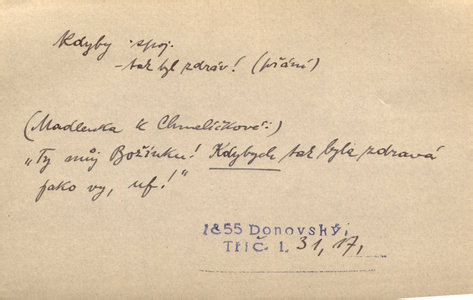 Kdyby spoj.
-taž byl zdráv! (přání)
(Madlenka k Chmelíčkové:)
„Ty můj Božínku! Kdybych taž byla zdravá
jako vy, uf!"
1855 Donovský,
Tříč 1. 31, 17,